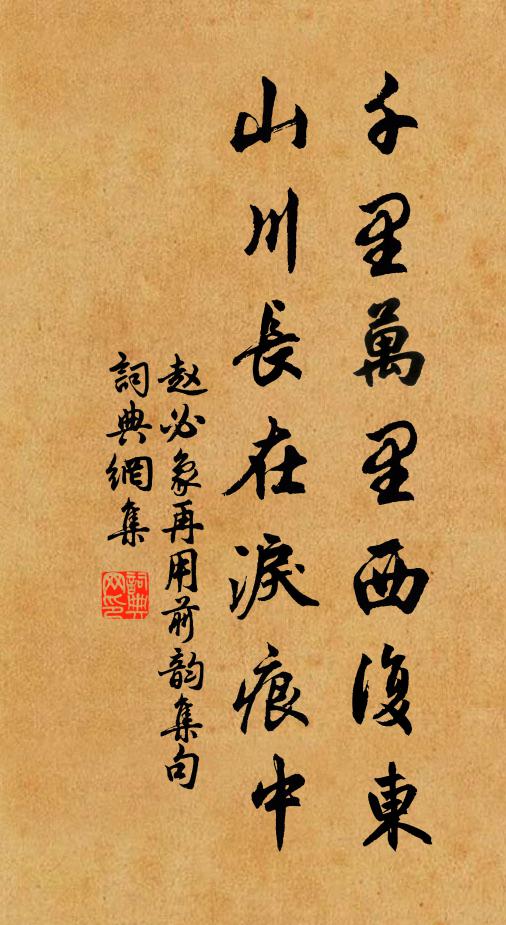 千里萬里西復東
山川長在淚痕中
赵必象再用前韵集句
詞典網集
詞典网印